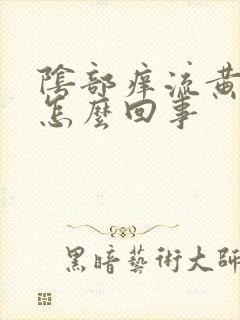 陰部痒流黄
怎麼回事
黑暗藝術大師